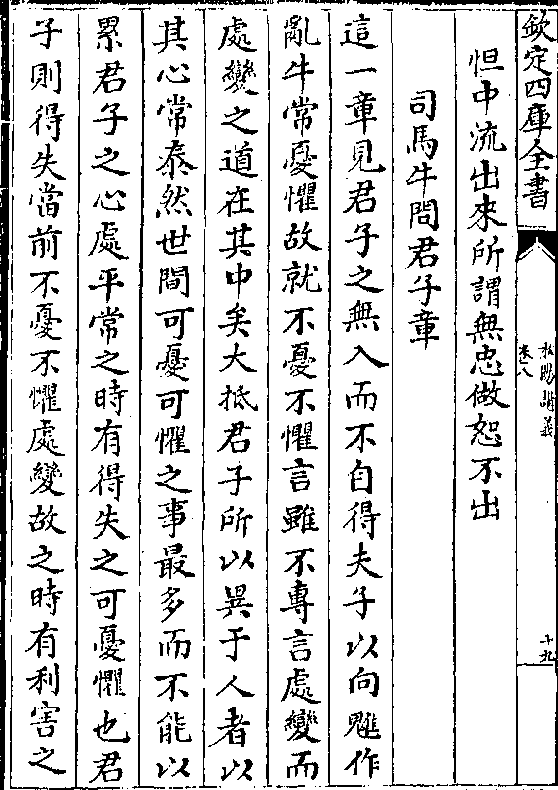 欽定四庫全書
松陽講義
卷八
十九
怛中流出來所謂無忠做恕不出
司馬牛問君子章
這一章見君子之無入而不自得夫子以向魋作
亂牛常憂懼故就不憂不懼言雖不專言處變而
處變之道在其中矣大抵君子所以異于人者以
其心常泰然世間可憂可懼之事最多而不能以
累君子之心處平常之時有得失之可憂懼也君
子則得失當前不憂不懼處變故之時有利害之